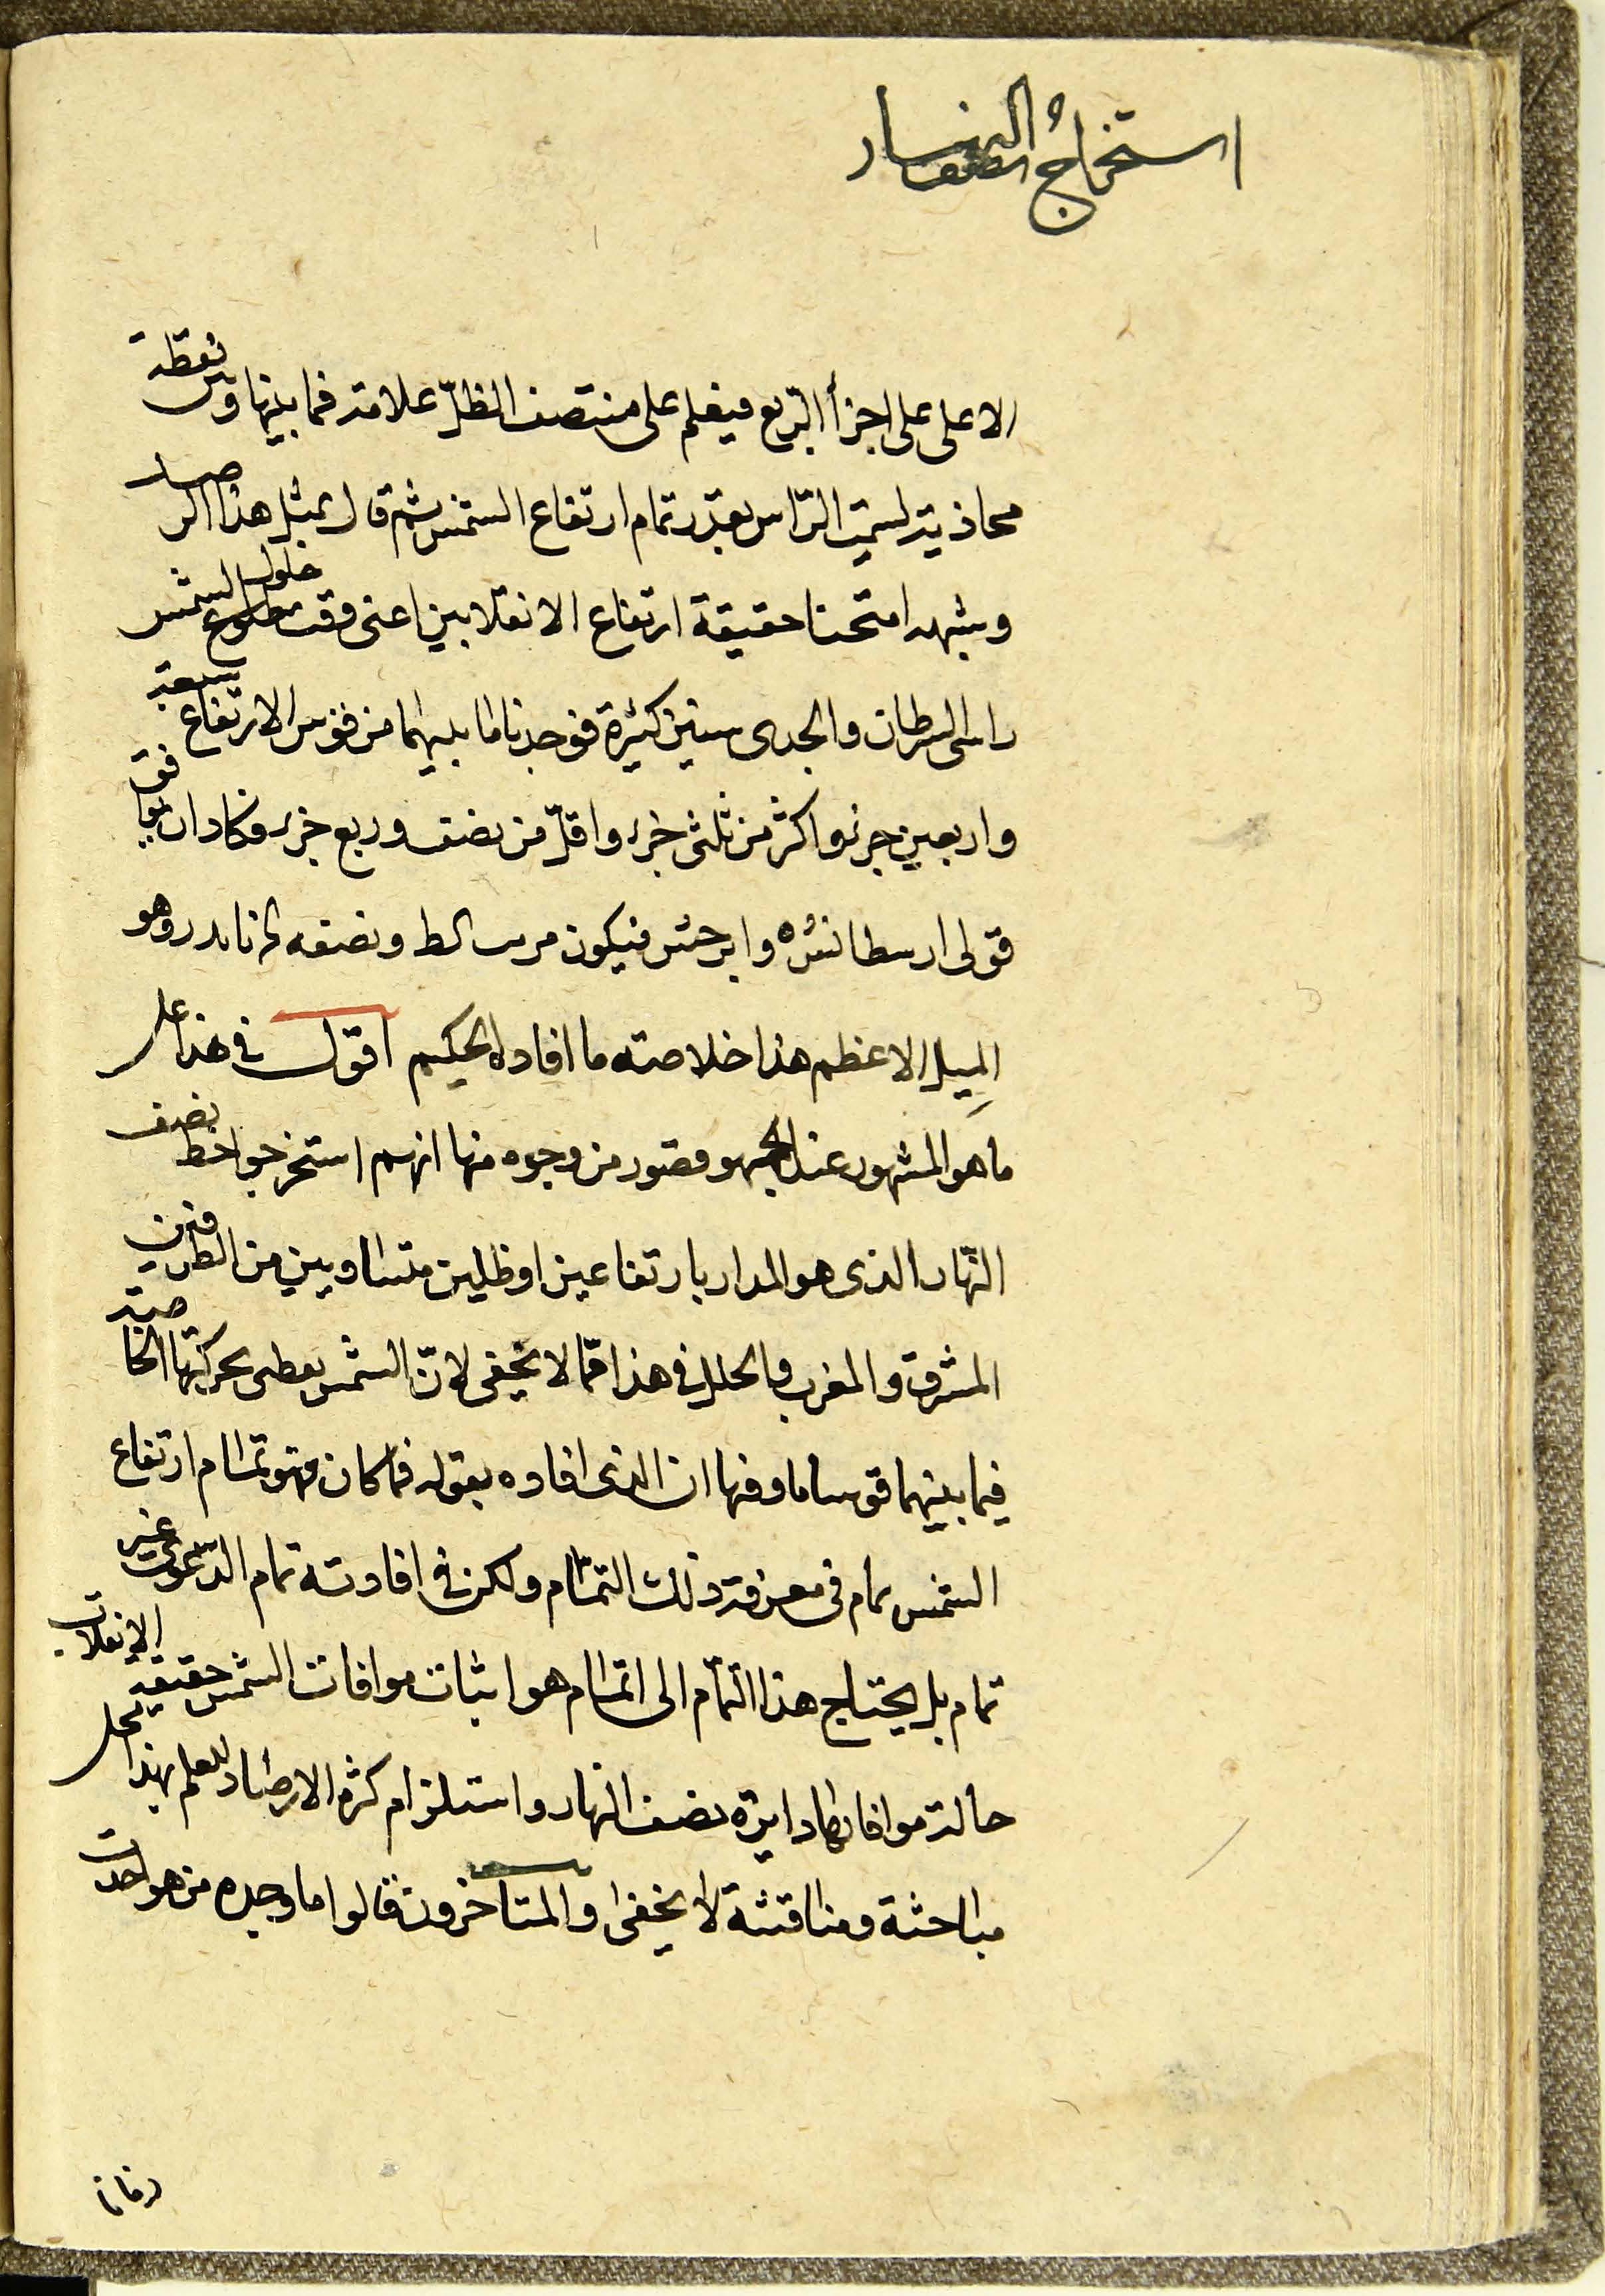 استخراج
الاعلى على اجزأ الربع فيعلم على منتصف الظلّ علامة فما بينها وبين نقطة
محاذية لسمت الرّاس بقدر تمام ارتفاع الشمس ثم قال بمثل هذا الرصد
وبشبهه امتحنا حقيقة ارتفاع الانقلابين اعنى وقت حلول الشمس
راسى السرطان والجدى سنين كثيرة فوجدنا ما بينهما من قوس الارتفاع سبعة
واربعين جزئوا اكثر من ثلثى جزء واقلّ من نصف وربع جزء وكاد ان يوافق
قولى ارسطانس وابرخس فيكون ونصفه وهو
الميل الاعظم هذا خلاصته ما افاده الحكيم اقول فى هذا على
ما هو المشهور عند الجمهو قصور من وجوه منها انهم استخرجوا خط نصف
النّهار الذى هو المدار بارتفاعين او ظلين متساويين من الطرفين
المشرق والمغرب والخلل فى هذا ممّا لا يخفى لانّ الشمس يعطى بحركتها الخاصة
فيما بينهما قوسا ما وفها ان الذى افاده بقوله فما كان فهو تمام ارتفاع
الشمس تمام فى معرفة ذلك التمام ولكن فى افادته تمام الدّعوى غير
تمام بل يحتاج هذا التمام الى اتمام هو اثبات موافات الشمس حقيقة الانقلاب
حالة موافاتها دايرة نصف النهار واستلزام كثرة الارصاد للعلم بهذا محل
مباحثة ومناقشة لا يخفى والمتاخرون قالوا ما وجده من هو احدث
زمانا